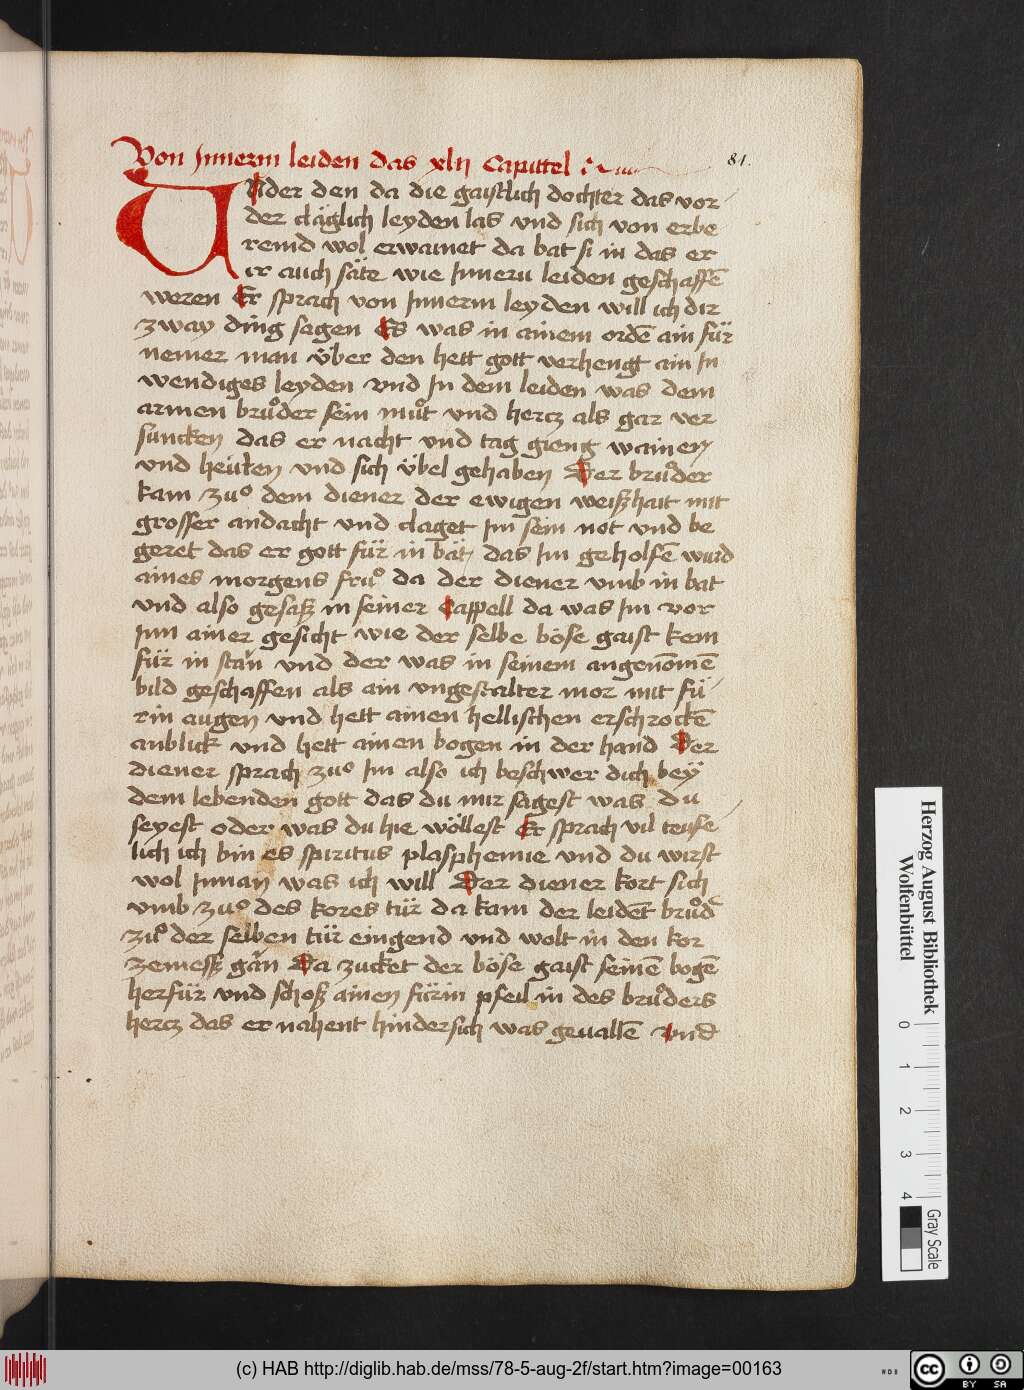 Von Innerm leiden das xlij Capittel
84.
Under den da die gaistlich dochter das vor
der cläglich leyden las vnd sich von erbe
remd wol erwainet da bat si in das er
ir auch säte wie Inneru leiden geschaffē
weren Er sprach von Innerm leyden will ich dir
zway ding sagen Es was in ainem ordē ain für
nemer man über den hett gott verhengt ain In
wendiges leyden vnd In dem leiden was dem
armen brůder sein můt vnd hercz als gar ver
suncken das er nacht vnd tag gieng wainen
vnd heülen vnd sich übel gehaben Der brůder
kam zuͦ dem diener der ewigen weißhait mit
grosser andacht vnd claget Im sein not vnd be
geret das er gott für in bät das Im geholfē wurd
aines morgens fruͦ da der diener vmb in bat
vnd also gesaß in seiner Cappell da was Im vor
Inn ainer gesicht wie der selbe böse gaist kem
für in stän vnd der was in seinem angenōmē
bild geschaffen als ain vngestalter mor mit fü
rin augen vnd hett ainen hellischen erschrockē
anblick vnd hett ainen bogen in der hand Der
diener sprach zuͦ Im also ich beschwer dich bey
dem lebenden gott das du mir sagest was du
seyest oder was du hie wöllest Er sprach vil teufe
lich ich bin es spiritus plasphemie vnd du wirst
wol Innan was ich will Der diener kort sich
vmb zuͦ des kores tür da kam der leidēt brůd
zuͦ der selben tür eingend vnd wolt in den kor
zemess gän Da zucket der böse gaist seinē bogē
herfür vnd schoß ainen fürin pfeil in des brůders
hercz das er nahent hindersich was geuallē vnd
Herzog August Bibliothek
Wolfenbüttel
0 1 2 3 4
Gray Scale
(c) HAB http://diglib.hab.de/mss/78-5-aug-2f/start.htm?image=00163
WDB
cc BY SA